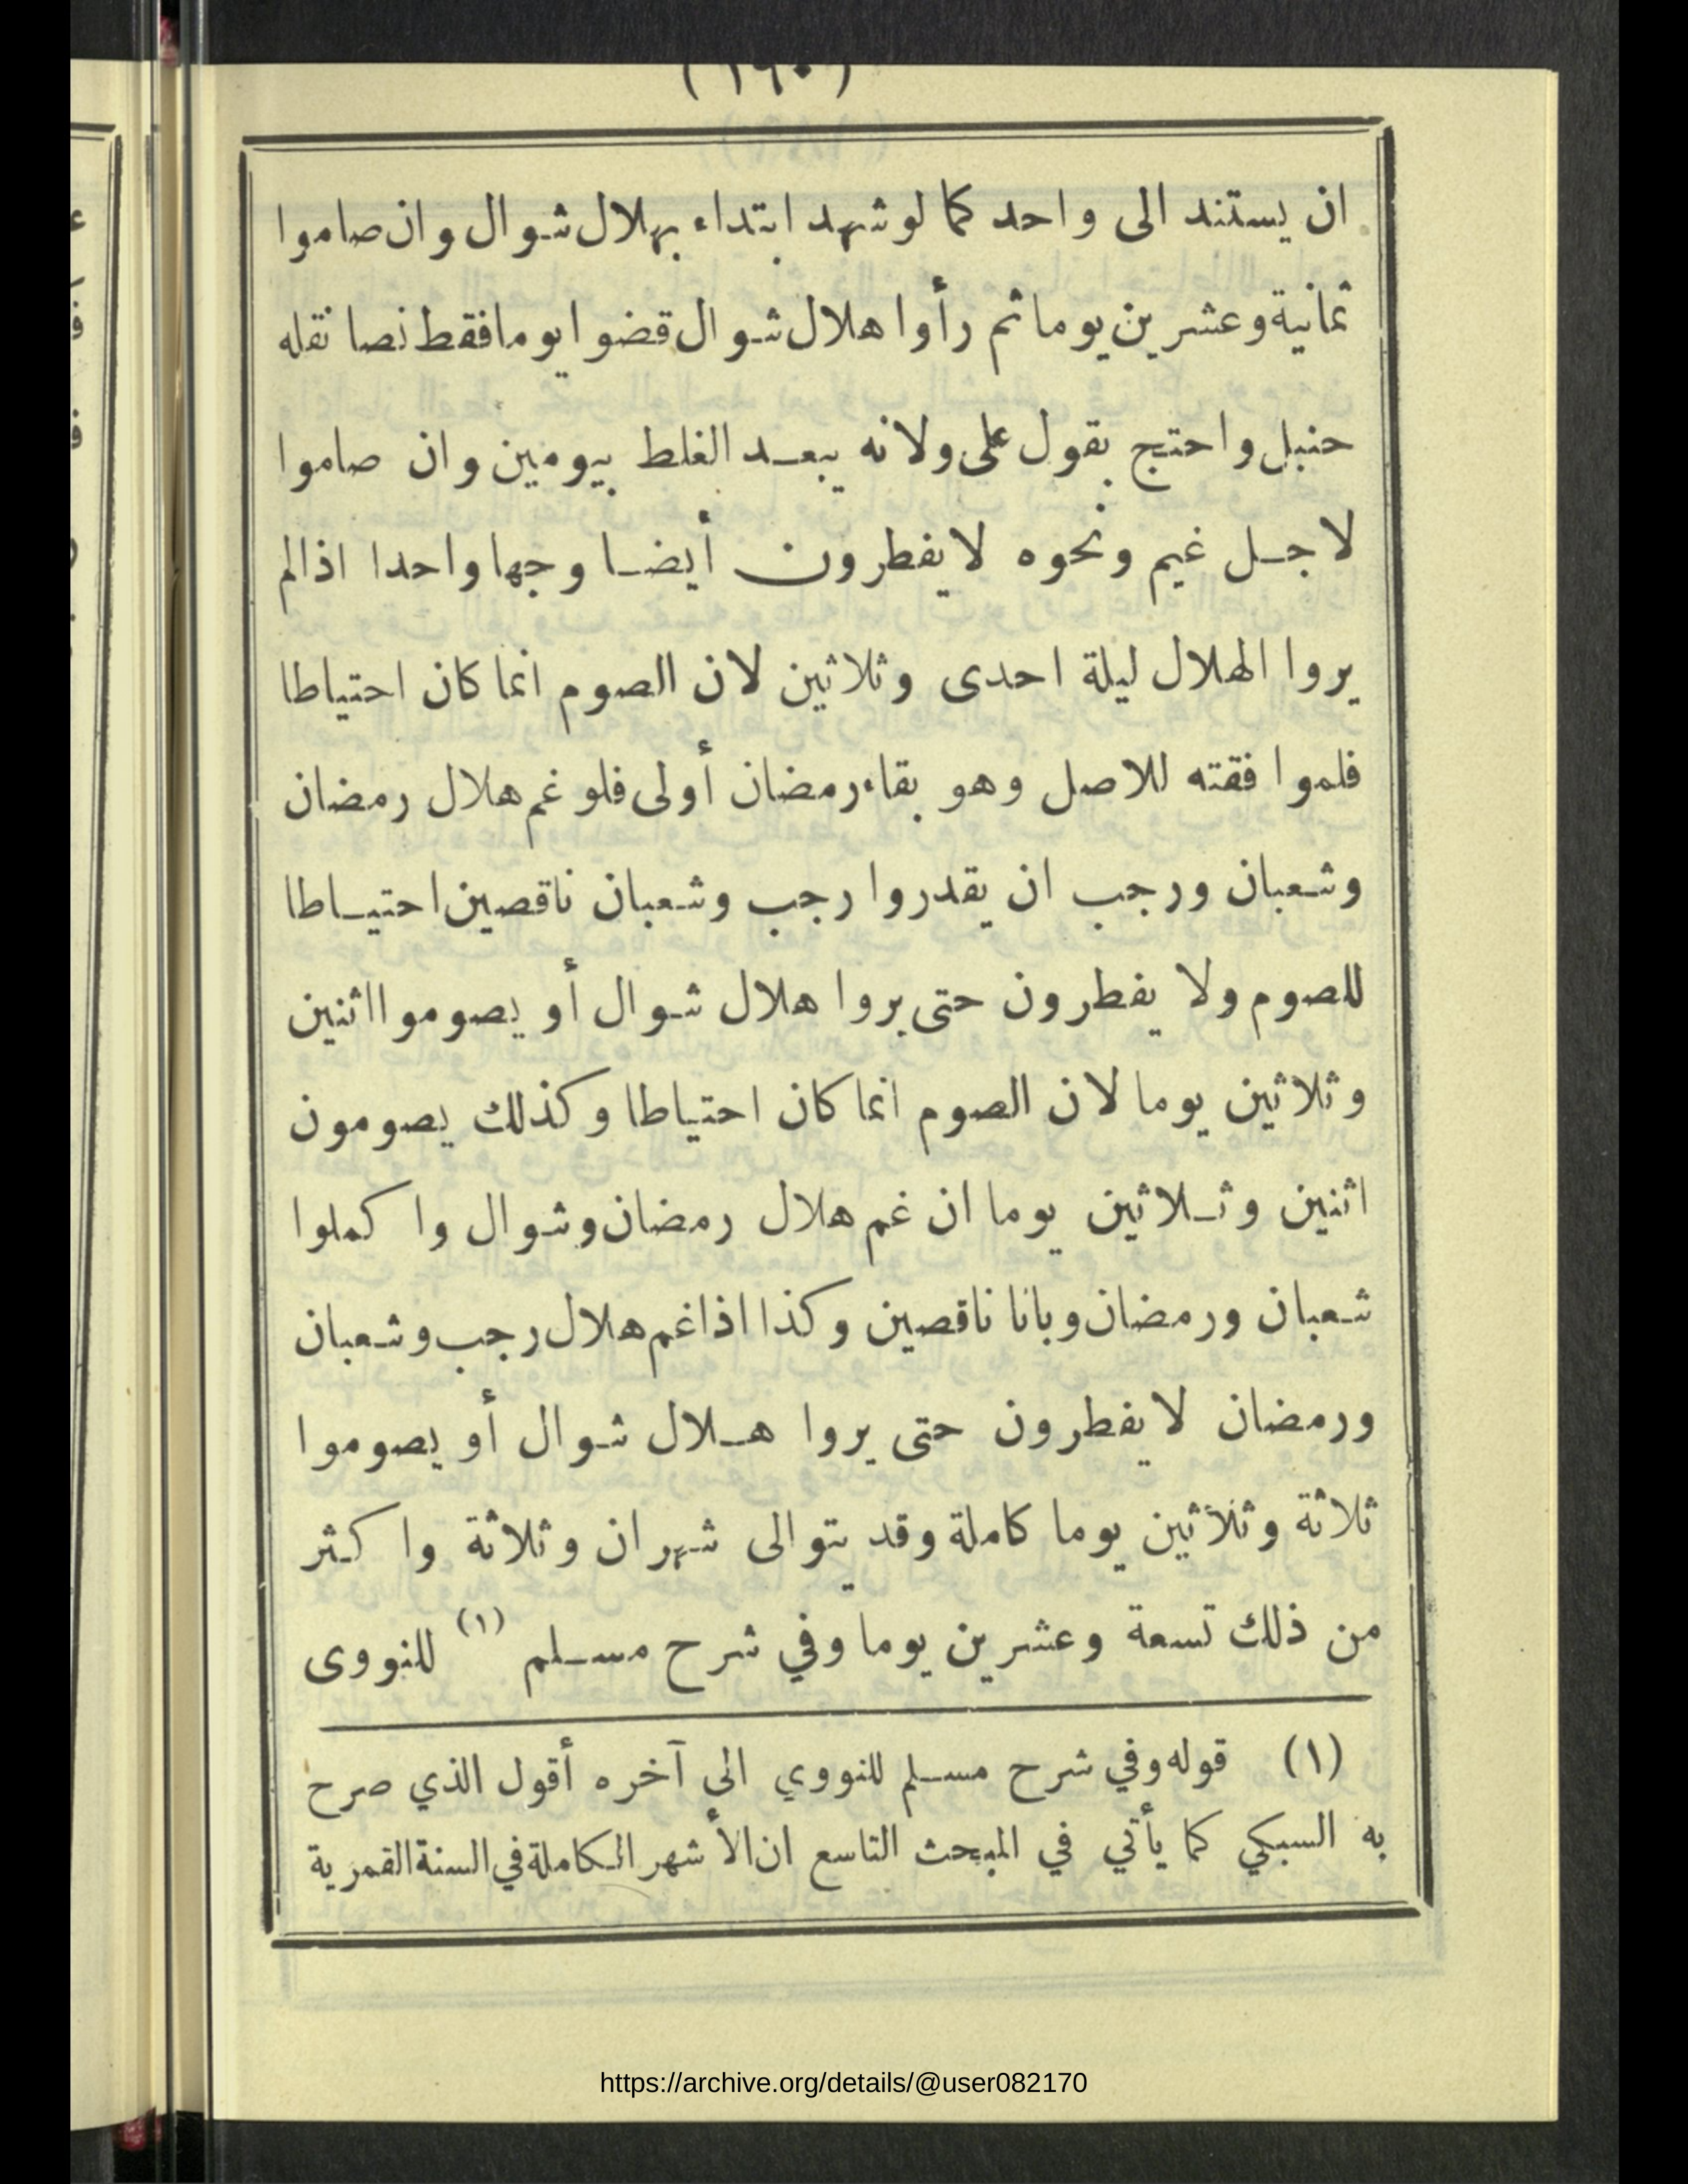 (١٦٠)
ان يستند الى واحد كما لو شهد ابتداء بهلال شوال وان صاموا
ثمانية وعشرين يوما ثم رأوا هلال شوال قضوا يوما فقط نصا نقله
حنبل واحتج بقول على ولانه يبعد الغلط بيومين وان صاموا
لاجل غيم ونحوه لا يفطرون أيضا وجها واحدا اذالم
يروا الهلال ليلة احدى وثلاثين لان الصوم انما كان احتياطا
فلموافقته للاصل وهو بقاء رمضان أولى فلو غم هلال رمضان
وشعبان ورجب ان يقدروا رجب وشعبان ناقصين احتياطا
للصوم ولا يفطرون حتى يروا هلال شوال أو يصوموا اثنين
وثلاثين يوما لان الصوم انما كان احتياطا وكذلك يصومون
اثنين وثلاثين يوما ان غم هلال رمضان وشوال واكملوا
شعبان ورمضان وبانا ناقصين وكذا اذا غم هلال رجب وشعبان
ورمضان لا يفطرون حتى يروا هلال شوال أو يصوموا
ثلاثة وثلاثين يوما كاملة وقد يتوالى شهران وثلاثة واكثر
من ذلك تسعة وعشرين يوما وفي شرح مسلم (١) للنووى
(١) قوله وفي شرح مسلم للنووي الى آخره أقول الذي صرح
به السبكي كما يأتي في المبحث التاسع ان الأشهر الكاملة في السنة القمرية
https://archive.org/details/@user082170